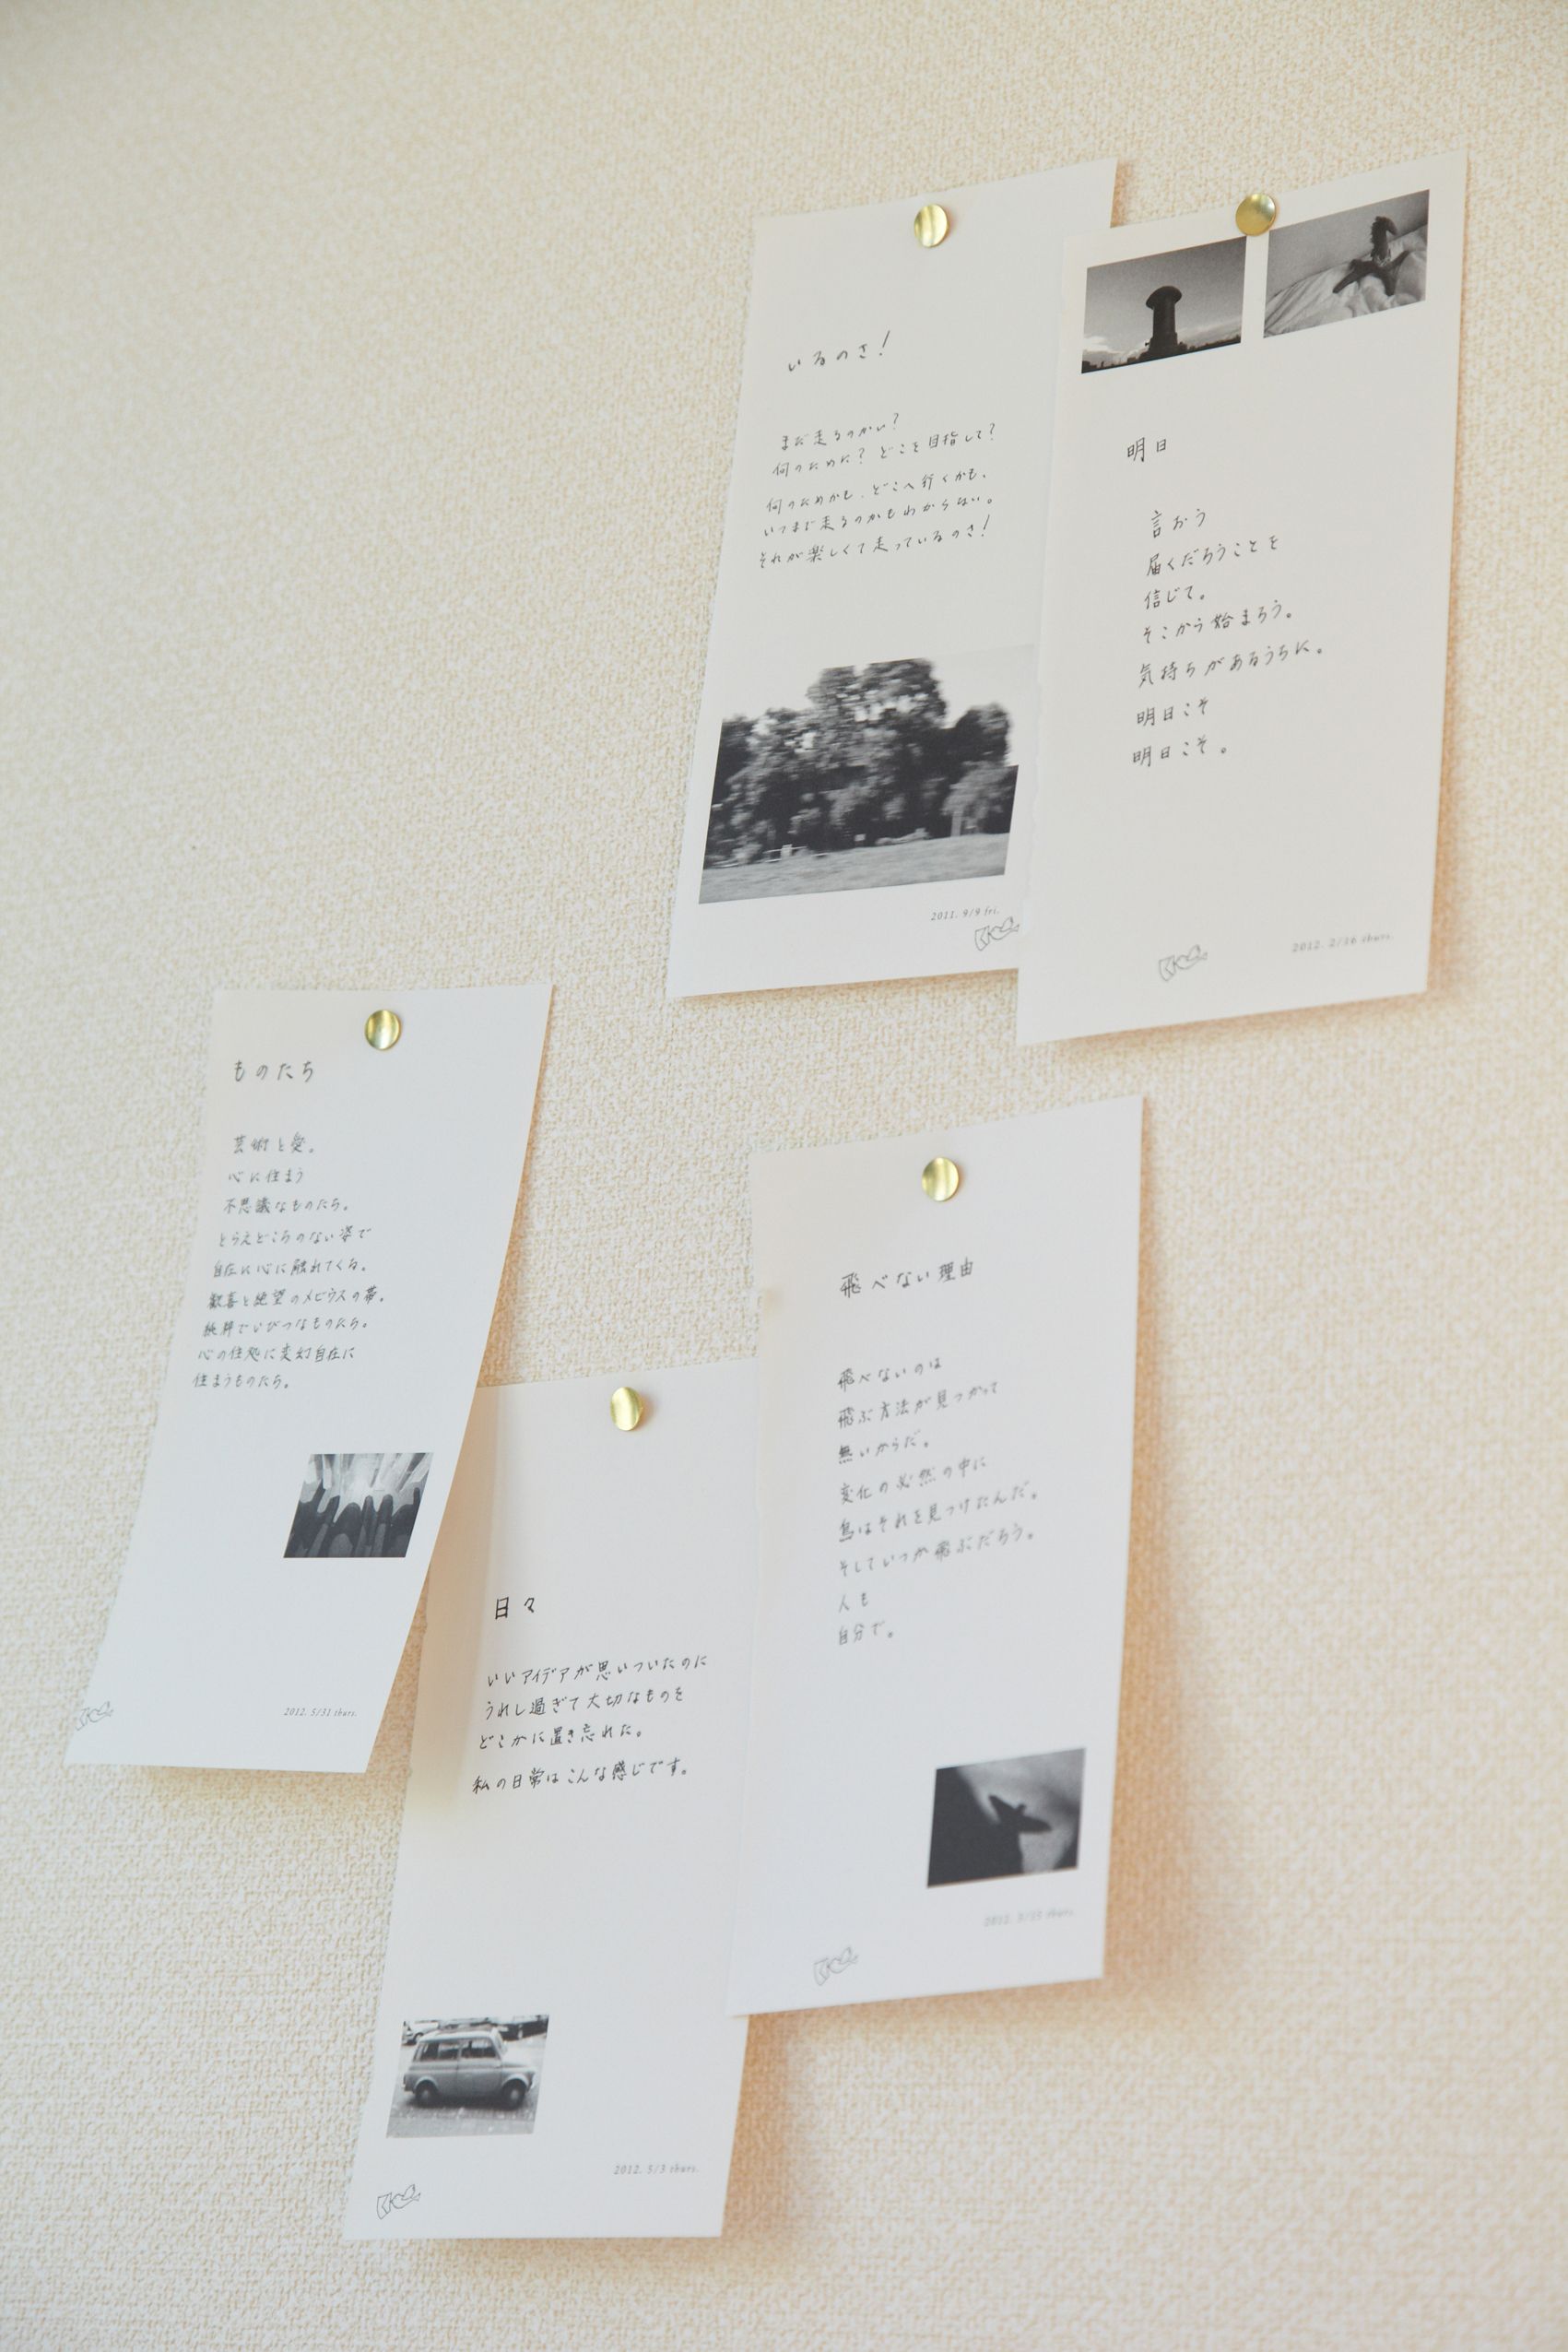 いるのさ!
まだ走るのかい?
何のために? どこを目指して?
何のためかも、どこへ行くかも、
いつまで走るのかもわからない。
それが楽しくて走っているのさ!
2011. 9/9 fri.
明日
言おう
届くだろうことを
信じて。
そこから始まろう。
気持ちがあるうちに。
明日こそ
明日こそ。
2012. 2/16 thurs.
ものたち
芸術と愛。
心に住まう
不思議なものたち。
とらえどころのない姿で
自在に心に触れてくる。
歓喜と絶望のメビウスの帯。
純粋でいびつなものたち。
心の住処に変幻自在に
住まうものたち。
2012. 5/31 thurs.
飛べない理由
飛べないのは
飛ぶ方法が見つかって
無いからだ。
変化の必然の中に
鳥はそれを見つけたんだ。
そしていつか飛ぶだろう。
人も
自分で。
2012. 3/15 thurs.
日々
いいアイデアが思いついたのに
うれし過ぎて大切なものを
どこかに置き忘れた。
私の日常はこんな感じです。
2012. 5/3 thurs.